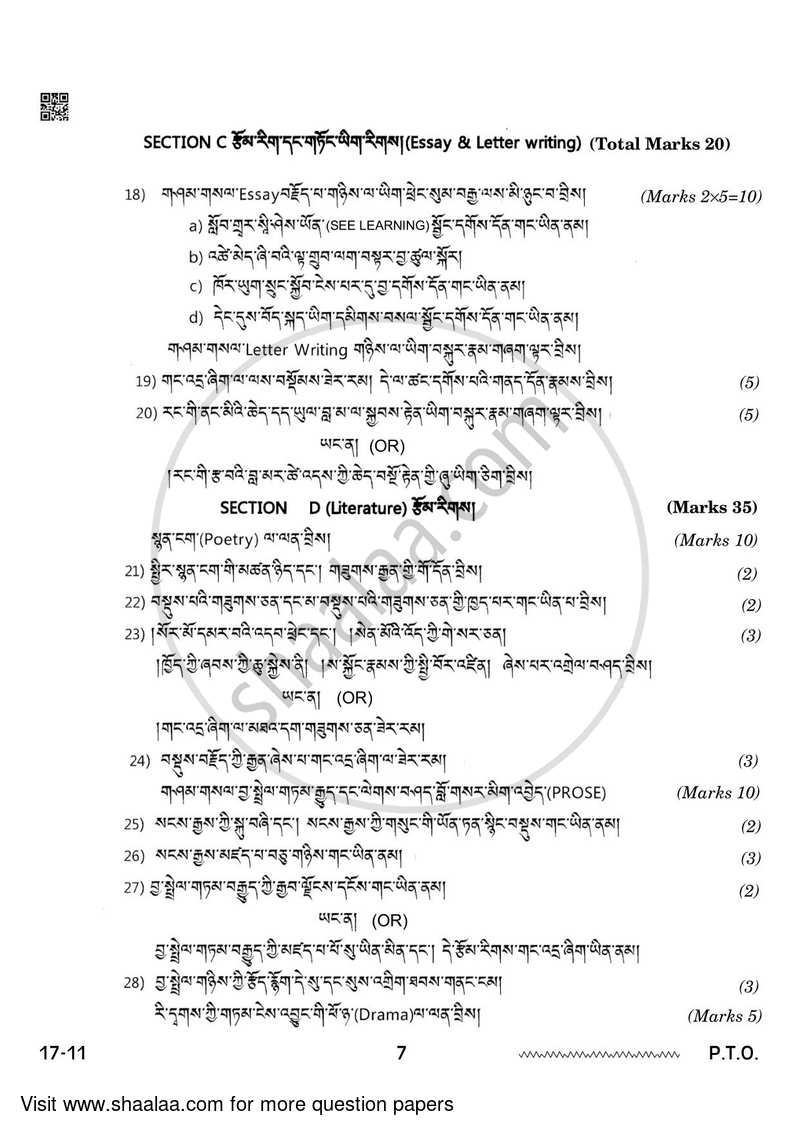 SECTION C རྩོམ་རིག་དང་གཏོང་ཡིག་རིགས།(Essay & Letter writing) (Total Marks 20)
18) གཤམ་གསལ་Essayབརྗོད་པ་གཉིས་ལ་ཡིག་ཕྲེང་སུམ་བརྒྱ་ལས་མི་ཉུང་བ་བྲིས། (Marks 2×5=10)
a) སློབ་གྲྭར་སཱི་ཤེས་ཡོན་(SEE LEARNING)སྦྱོང་དགོས་དོན་གང་ཡིན་ནམ།
b) འཚེ་མེད་ཞི་བའི་ལྟ་གྲུབ་ལག་བསྟར་བྱ་ཚུལ་སྐོར།
c) ཁོར་ཡུག་སྲུང་སྐྱོབ་ངེས་པར་དུ་བྱ་དགོས་དོན་གང་ཡིན་ནམ།
d) དེང་དུས་བོད་སྐད་ཡིག་དམིགས་བསལ་སྦྱོང་དགོས་དོན་གང་ཡིན་ནམ།
གཤམ་གསལ་Letter Writing གཉིས་ལ་ཡིག་བསྐུར་རྣམ་གཞག་ལྟར་བྲིས།
19) གང་འདྲ་ཞིག་ལ་ལས་བསྡོམས་ཟེར་རམ། དེ་ལ་ཚང་དགོས་པའི་གནད་དོན་རྣམས་བྲིས། (5)
20) རང་གི་ནང་མིའི་ཆེད་དད་ཡུལ་བླ་མ་ལ་སྐྱབས་རྟེན་ཡིག་བསྐུར་རྣམ་གཞག་ལྟར་བྲིས། (5)
ཡང་ན། (OR)
།རང་གི་རྩ་བའི་བླ་མར་ཚེ་འདས་ཀྱི་ཆེད་བསྔོ་རྟེན་གྱི་ཞུ་ཡིག་ཅིག་བྲིས།
SECTION D (Literature) རྩོམ་རིགས། (Marks 35)
སྙན་ངག་(Poetry) ལ་ལན་བྲིས། (Marks 10)
21) སྤྱིར་སྙན་ངག་གི་མཚན་ཉིད་དང་། གཟུགས་རྒྱན་གྱི་གོ་དོན་བྲིས། (2)
22) བསྡུས་པའི་གཟུགས་ཅན་དང་མ་བསྡུས་པའི་གཟུགས་ཅན་གྱི་ཁྱད་པར་གང་ཡིན་པ་བྲིས། (2)
23) །སོར་མོ་དམར་བའི་འདབ་ཕྲེང་དང་། །སེན་མོའི་འོད་ཀྱི་གེ་སར་ཅན། (3)
།ཁྱོད་ཀྱི་ཞབས་ཀྱི་ཆུ་སྐྱེས་ནི། །ས་སྐྱོང་རྣམས་ཀྱི་སྤྱི་བོར་འཛིན། ཞེས་པར་འགྲེལ་བཤད་བྲིས།
ཡང་ན། (OR)
།གང་འདྲ་ཞིག་ལ་མཐའ་དག་གཟུགས་ཅན་ཟེར་རམ།
24) བསྡུས་བརྗོད་ཀྱི་རྒྱན་ཞེས་པ་གང་འདྲ་ཞིག་ལ་ཟེར་རམ། (3)
གཤམ་གསལ་བྱ་སྤྲེལ་གཏམ་རྒྱུད་དང་ལེགས་བཤད་བློ་གསར་མིག་འབྱེད་(PROSE) (Marks 10)
25) སངས་རྒྱས་ཀྱི་སྐུ་བཞི་དང་། སངས་རྒྱས་ཀྱི་གསུང་གི་ཡོན་ཏན་སྙིང་བསྡུས་གང་ཡིན་ནམ། (2)
26) སངས་རྒྱས་མཛད་པ་བཅུ་གཉིས་གང་ཡིན་ནམ། (3)
27) བྱ་སྤྲེལ་གཏམ་བརྒྱུད་ཀྱི་རྒྱབ་ལྗོངས་དངོས་གང་ཡིན་ནམ། (2)
ཡང་ན། (OR)
བྱ་སྤྲེལ་གཏམ་བརྒྱུད་ཀྱི་མཛད་པ་པོ་སུ་ཡིན་མིན་དང་། དེ་རྩོམ་རིགས་གང་འདྲ་ཞིག་ཡིན་ནམ།
28) བྱ་སྤྲེལ་གཉིས་ཀྱི་རྩོད་རྙོག་དེ་སུ་དང་སུས་འགྲིག་ཐབས་གནང་ངམ། (3)
རི་དྭགས་ཀྱི་གཏམ་ངེས་འབྱུང་གི་ཕོ་ཉ་(Drama)ལ་ལན་བྲིས། (Marks 5)
17-11 7 P.T.O.
shaalaa.com
Visit www.shaalaa.com for more question papers